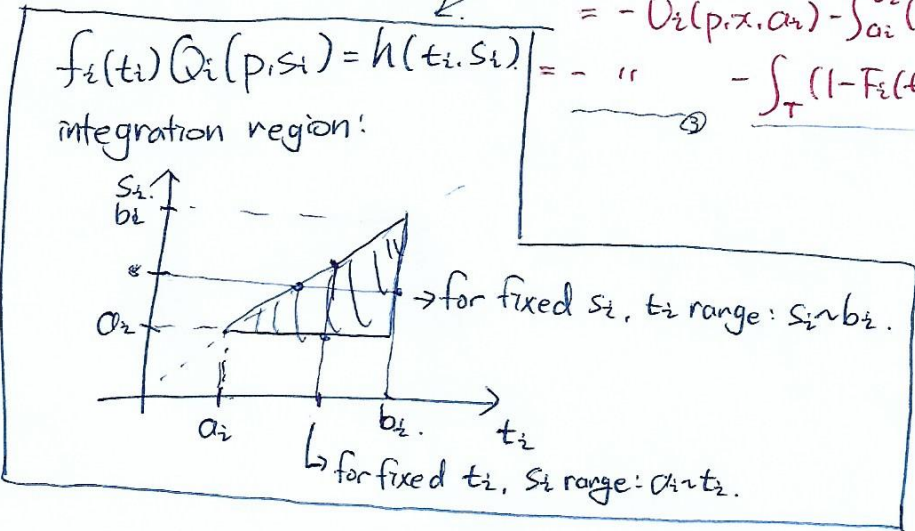 = - U_i(p,x,a_i) - ∫_{a_i}
f_i(t_i) Q_i(p,s_i) = h(t_i,s_i).
= - " - ∫_T (1-F_i(t
③
integration region:
s_i
b_i
a_i
→ for fixed s_i, t_i range: s_i~b_i.
a_i b_i. t_i
↳ for fixed t_i, s_i range: a_i~t_i.